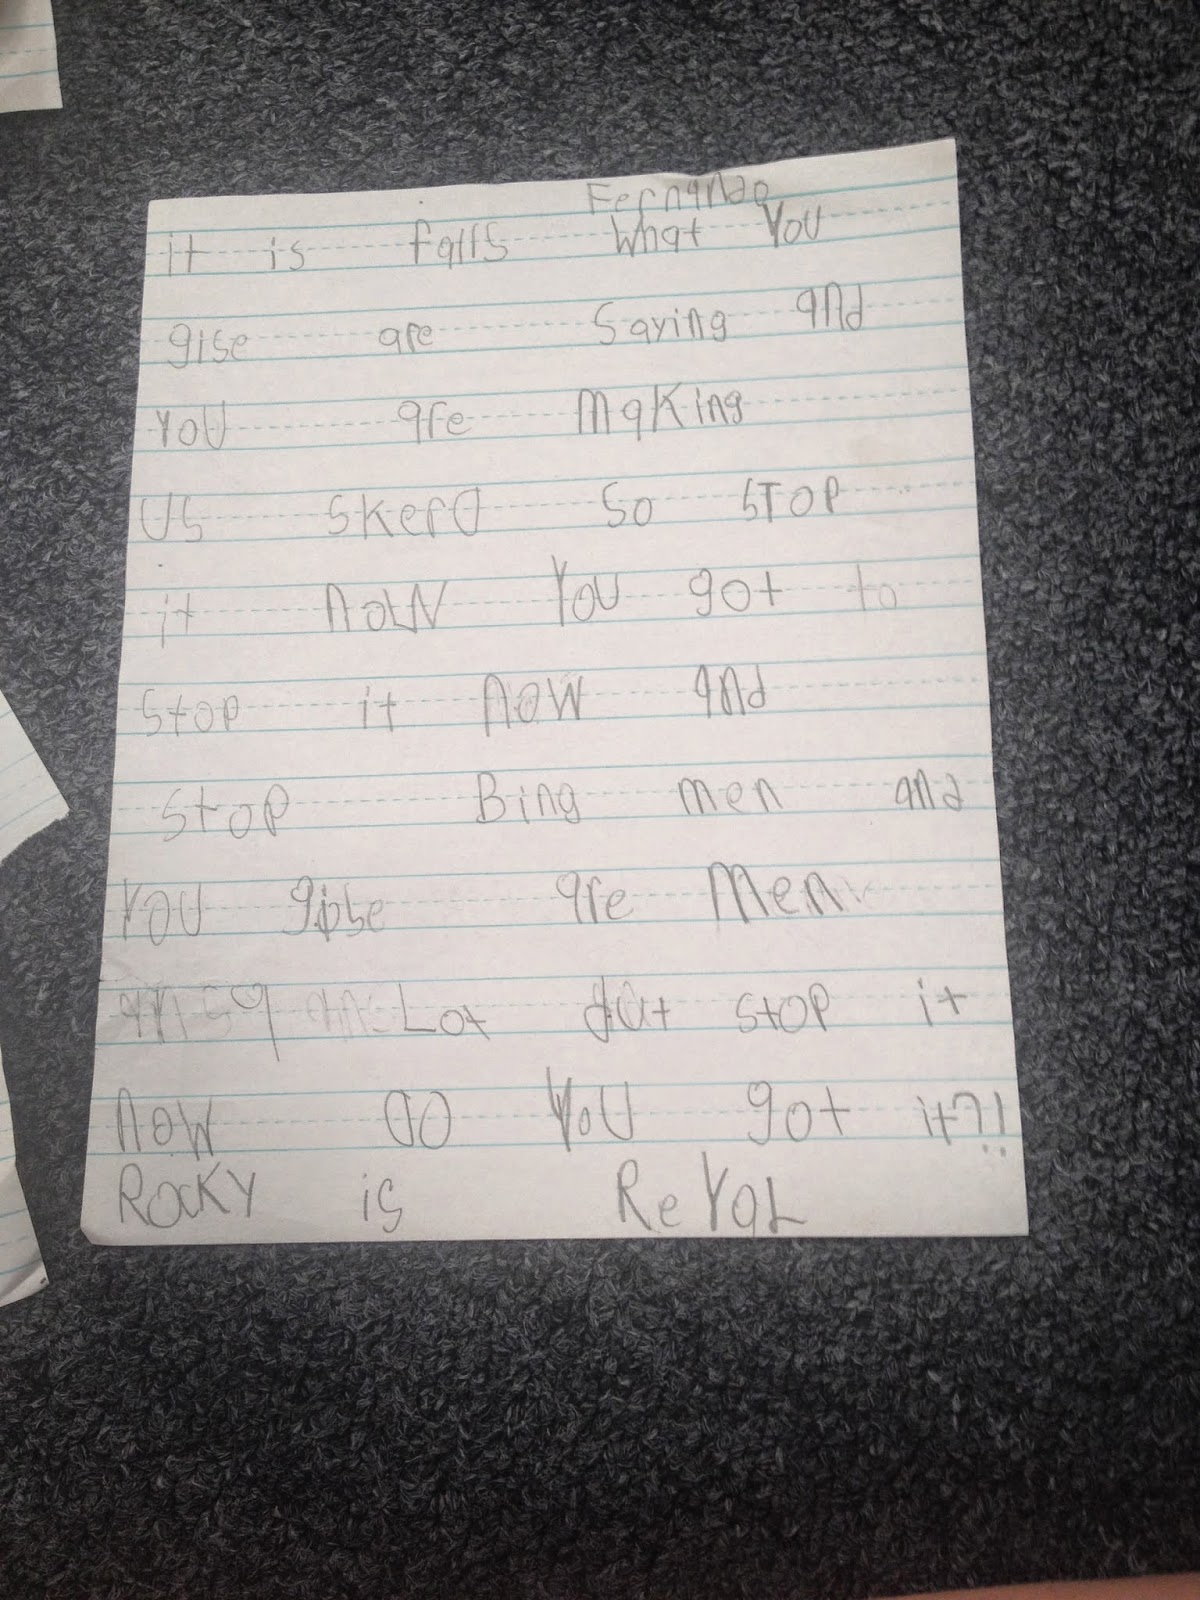 Fernando
it is falls What you
gise are Saying and
you are Making
us skerd so STOP
it now You got to
stop it now and
stop Bing men and
you gise are Men
Lot but stop it
now do you got it?!
Rocky is ReyaL